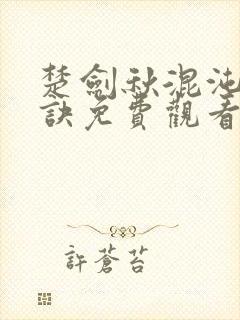 楚劍秋混沌
訣免費觀看
許蒼苔